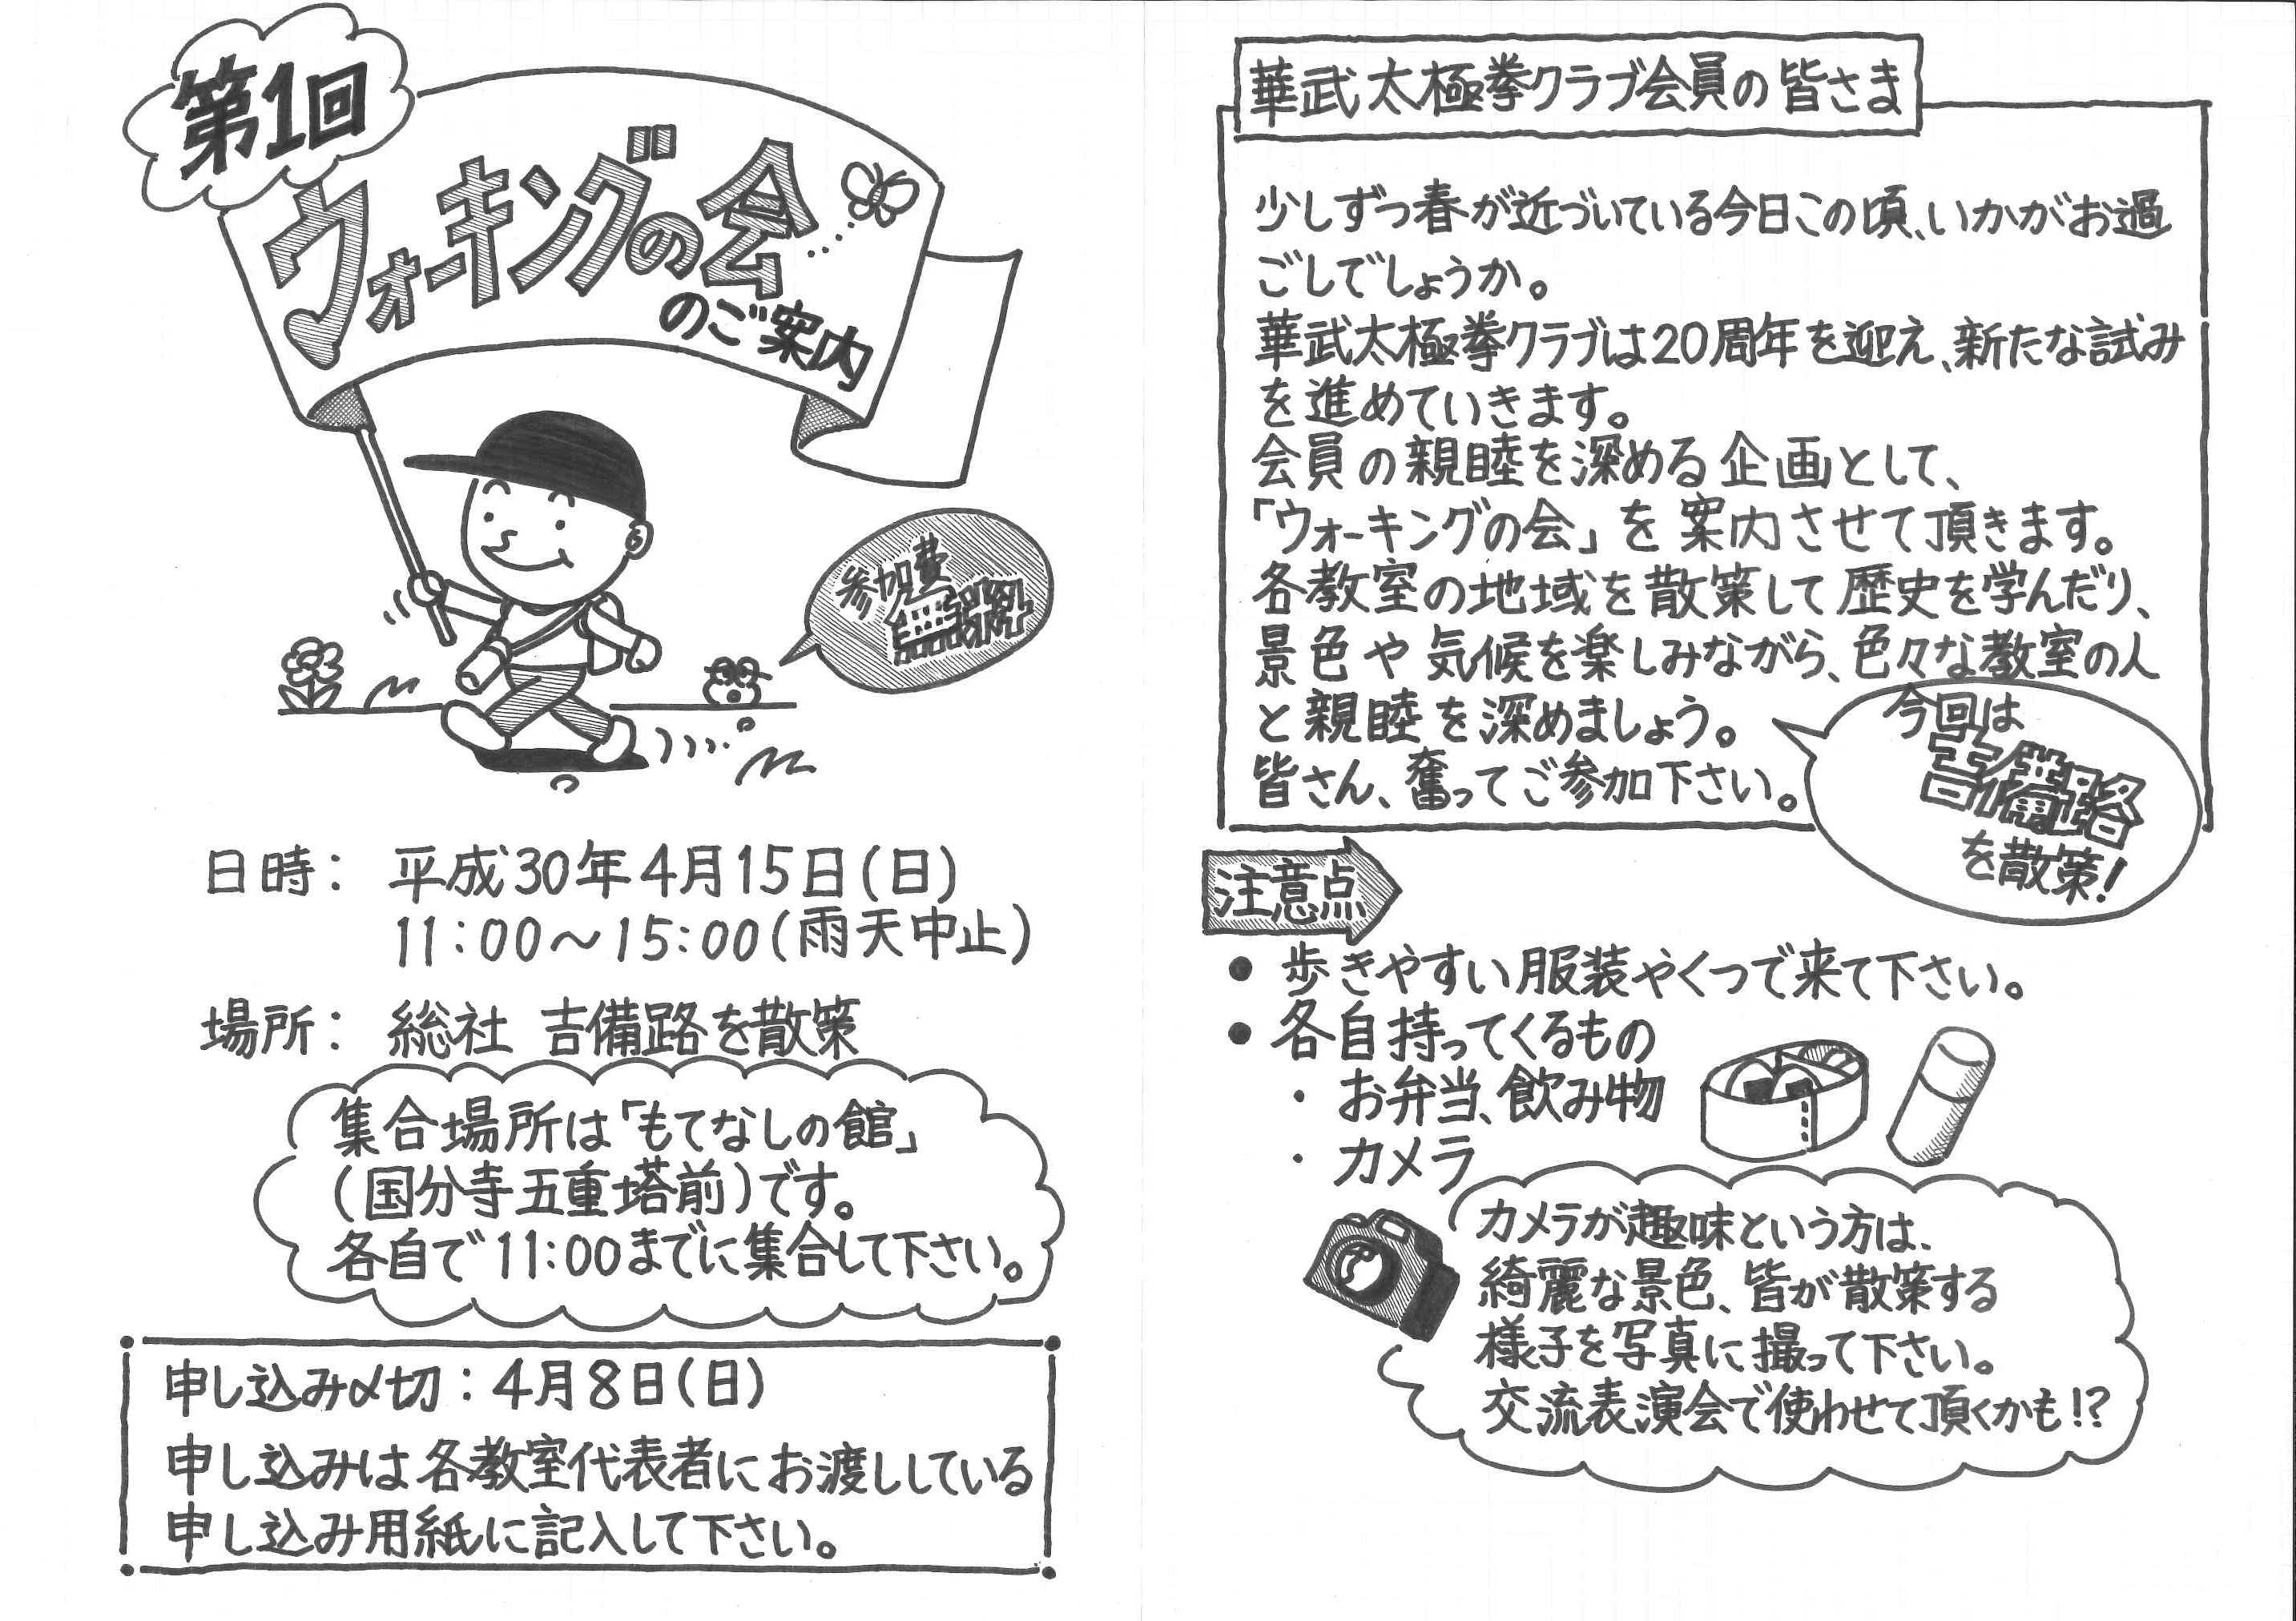 第1回
ウォーキングの会
のご案内
参加費
無料
日時： 平成30年4月15日(日)
11:00～15:00(雨天中止)
場所： 総社 吉備路を散策
集合場所は「もてなしの館」
(国分寺五重塔前)です。
各自で11:00までに集合して下さい。
申し込み〆切：4月8日(日)
申し込みは各教室代表者にお渡ししている
申し込み用紙に記入して下さい。
華武太極拳クラブ会員の皆さま
少しずつ春が近づいている今日この頃、いかがお過
ごしでしょうか。
華武太極拳クラブは20周年を迎え、新たな試み
を進めていきます。
会員の親睦を深める企画として、
「ウォーキングの会」を案内させて頂きます。
各教室の地域を散策して歴史を学んだり、
景色や気候を楽しみながら、色々な教室の人
と親睦を深めましょう。
皆さん、奮ってご参加下さい。
今回は
吉備路
を散策！
注意点
● 歩きやすい服装やくつで来て下さい。
● 各自持ってくるもの
・ お弁当、飲み物
・ カメラ
カメラが趣味という方は、
綺麗な景色、皆が散策する
様子を写真に撮って下さい。
交流表演会で使わせて頂くかも!?